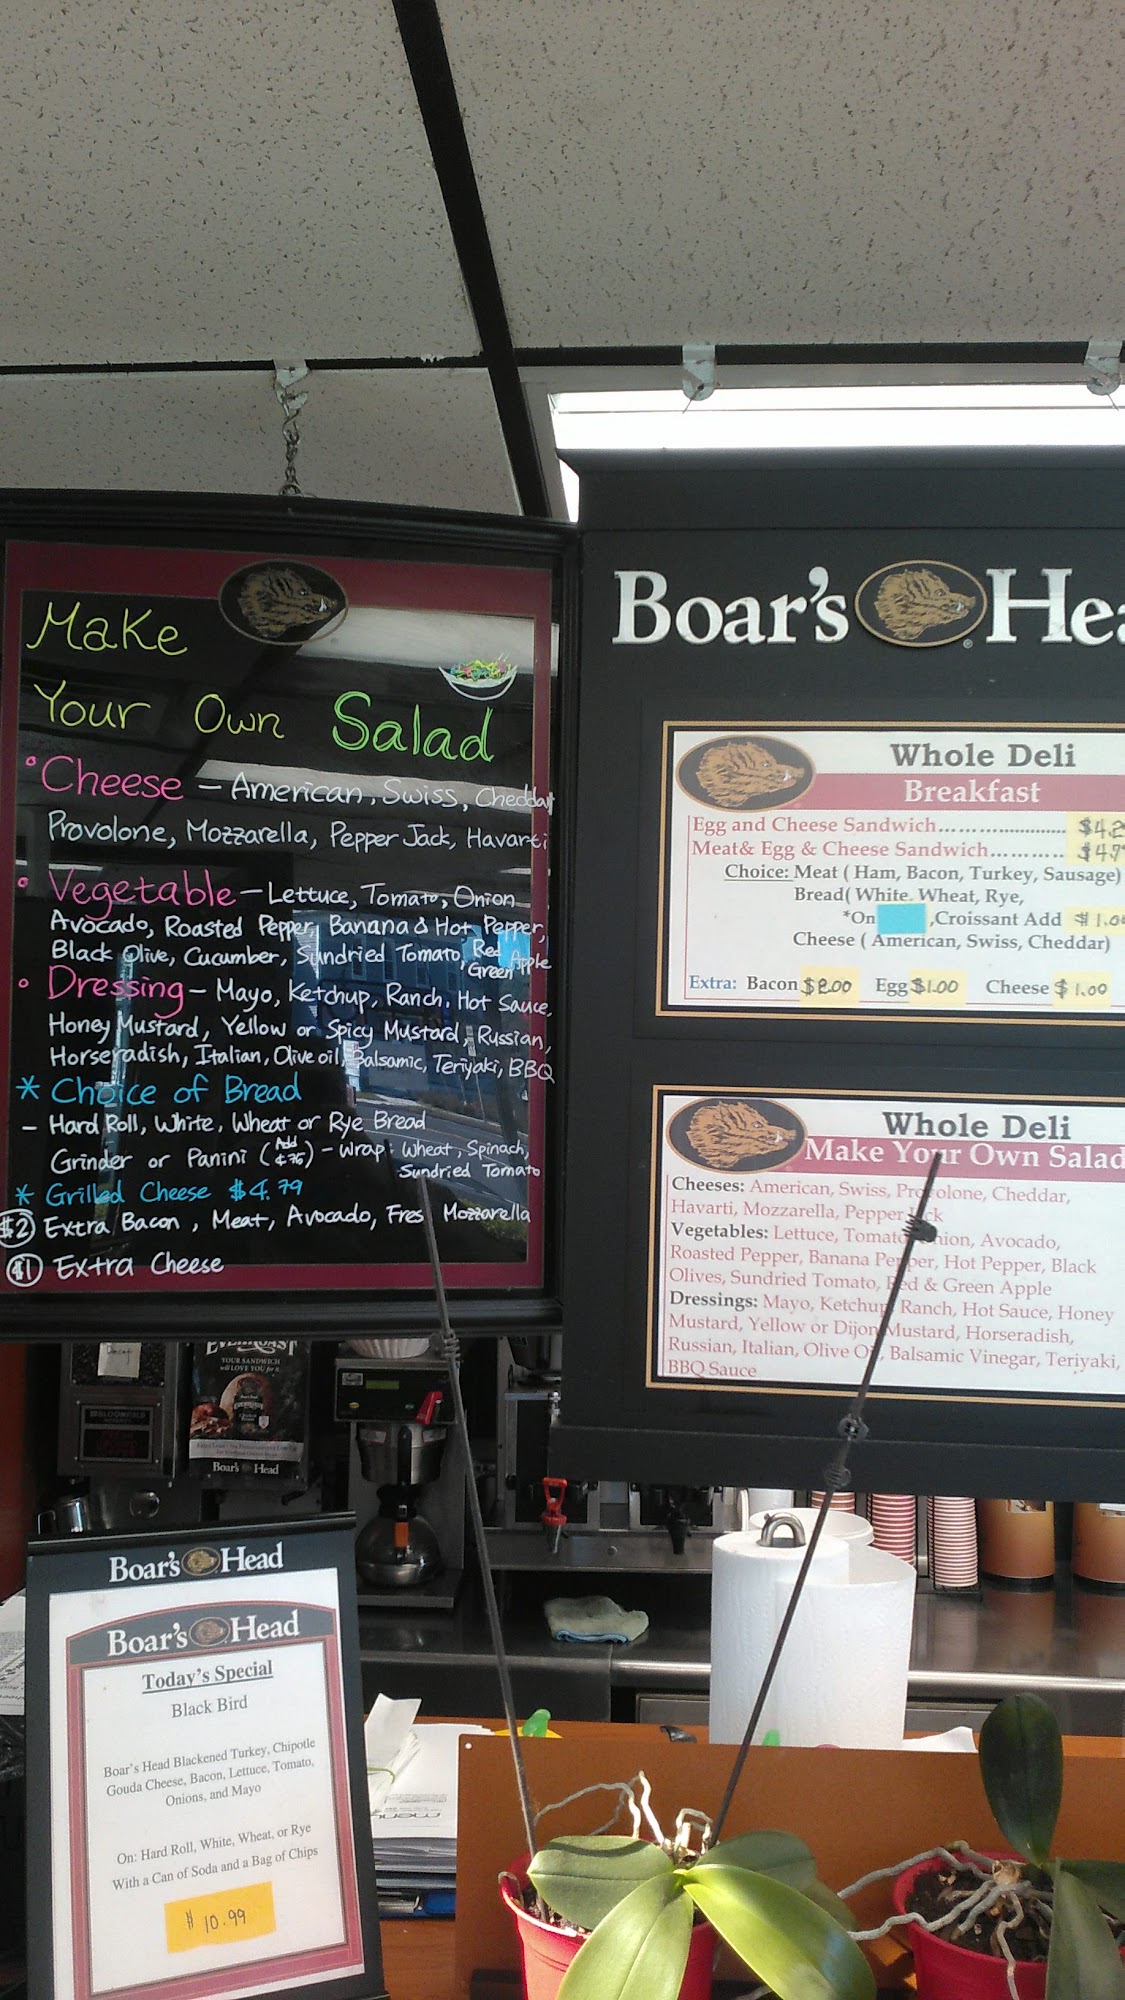 Make
Your Own Salad
Cheese - American, Swiss, Cheddar
Provolone, Mozzarella, Pepper Jack, Havarti
Vegetable - Lettuce, Tomato, Onion
Avocado, Roasted Pepper, Banana & Hot Pepper,
Black Olive, Cucumber, Sundried Tomato, Red Green Apple
Dressing - Mayo, Ketchup, Ranch, Hot Sauce,
Honey Mustard, Yellow or Spicy Mustard, Russian,
Horseradish, Italian, Olive oil, Balsamic, Teriyaki, BBQ
* Choice of Bread
- Hard Roll, White, Wheat or Rye Bread
Grinder or Panini (Add $.75) - Wrap: Wheat, Spinach,
Sundried Tomato
* Grilled Cheese $4.79
$2 Extra Bacon, Meat, Avocado, Fres Mozzarella
$1 Extra Cheese
Boar's Hea
Whole Deli
Breakfast
Egg and Cheese Sandwich................... $4.2
Meat& Egg & Cheese Sandwich............ $4.7
Choice: Meat ( Ham, Bacon, Turkey, Sausage)
Bread( White, Wheat, Rye,
*On ,Croissant Add $1.0
Cheese ( American, Swiss, Cheddar)
Extra: Bacon $2.00 Egg $1.00 Cheese $1.00
Whole Deli
Make Your Own Salad
Cheeses: American, Swiss, Provolone, Cheddar,
Havarti, Mozzarella, Pepper Jack
Vegetables: Lettuce, Tomato, Onion, Avocado,
Roasted Pepper, Banana Pepper, Hot Pepper, Black
Olives, Sundried Tomato, Red & Green Apple
Dressings: Mayo, Ketchup, Ranch, Hot Sauce, Honey
Mustard, Yellow or Dijon Mustard, Horseradish,
Russian, Italian, Olive Oil, Balsamic Vinegar, Teriyaki,
BBQ Sauce
Decaf
EVERROAST
YOUR SANDWICH
will LOVE YOU for it.
Boar's Head
BLOOMFIELD
Boar's Head
Boar's Head
Today's Special
Black Bird
Boar's Head Blackened Turkey, Chipotle
Gouda Cheese, Bacon, Lettuce, Tomato,
Onions, and Mayo
On: Hard Roll, White, Wheat, or Rye
With a Can of Soda and a Bag of Chips
$10.99